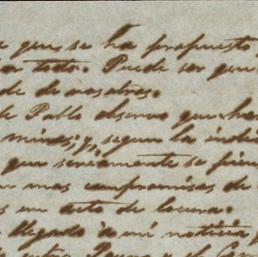 que se ha propuesto
todo. Puede ser que
de de nosotros.
Pablo observo que han
mires; y, segun la indi
que seriamente se pien
mas compromisos de
un acto de locura.
llegado á mi noticia
entre